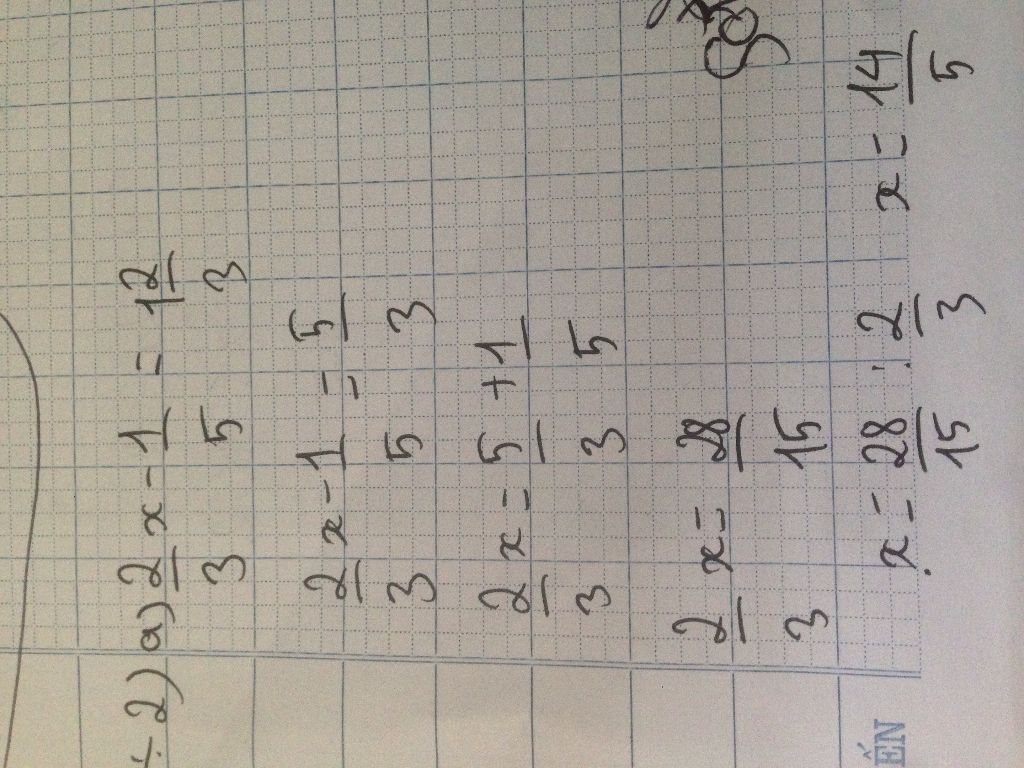 : 2) a) 2/3 x - 1/5 = 1 2/3
2/3 x - 1/5 = 5/3
2/3 x = 5/3 + 1/5
2/3 x = 28/15
x = 28/15 : 2/3
x = 14/5
ẾN